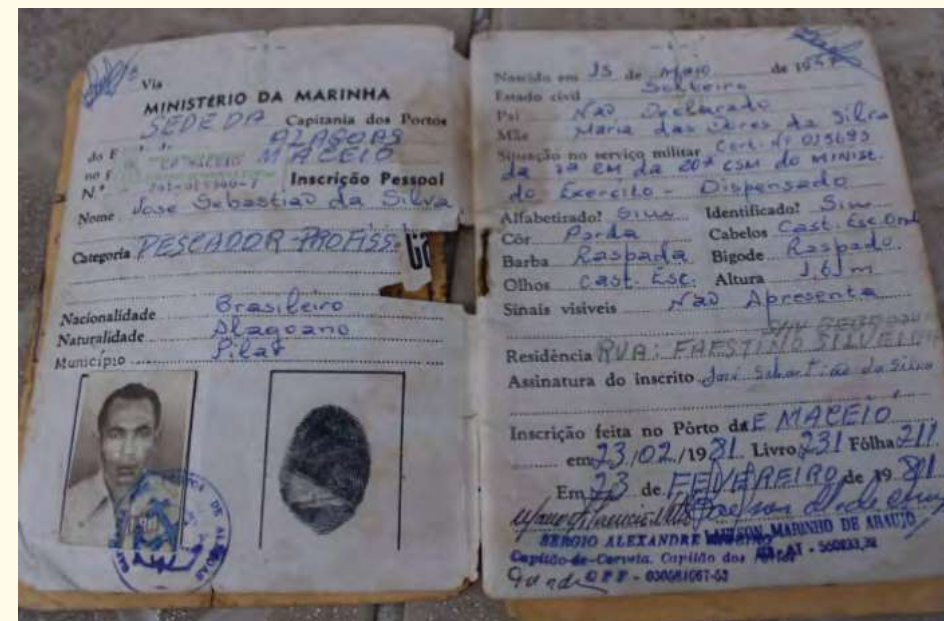 Via
MINISTÉRIO DA MARINHA
SEDE DA Capitania dos Portos
do E ALAGOAS
no MACEIO
N.º Inscrição Pessoal
Nome Jose Sebastião da Silva
Categoria PESCADOR PROFISS.
Nacionalidade Brasileiro
Naturalidade Alagoano
Município Pilar
Nascido em 15 de Maio de 19
Estado civil Solteiro
Pai Não Declarado
Mãe Maria das Dores da Silva
Situação no serviço militar Cert. Nº 015693
da 7ª CM da 20ª CSM do MINIST.
do Exercito - Dispensado
Alfabetizado? Sim Identificado? Sim
Côr Parda Cabelos Cast. Esc. Ond
Barba Raspada Bigode Raspado.
Olhos Cast. Esc. Altura 1,61m
Sinais visíveis Não Apresenta
Residência RUA: FAESTINO SILVEIRA
Assinatura do inscrito José Sebastião da Silva
Inscrição feita no Pôrto de MACEIO
em 23/02/1981 Livro 231 Fôlha 211
Em 23 de FEVEREIRO de 1981.
SERGIO ALEXANDRE MARINHO DE ARAUJO
Capitão-de-Corveta. Capitão dos Portos